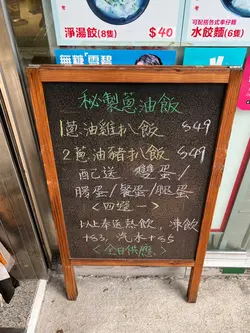 淨湯餃(8隻)
$40
可配搭各式車仔麵
水餃麵(8隻)
無糖雪碧
秘製蔥油飯
1蔥油雞扒飯 $49
2蔥油豬扒飯 $49
配送 雙蛋/
腸蛋/餐蛋/腿蛋
<四選一>
以上奉送熱飲，凍飲
+$3, 汽水+$5
<全日供應>